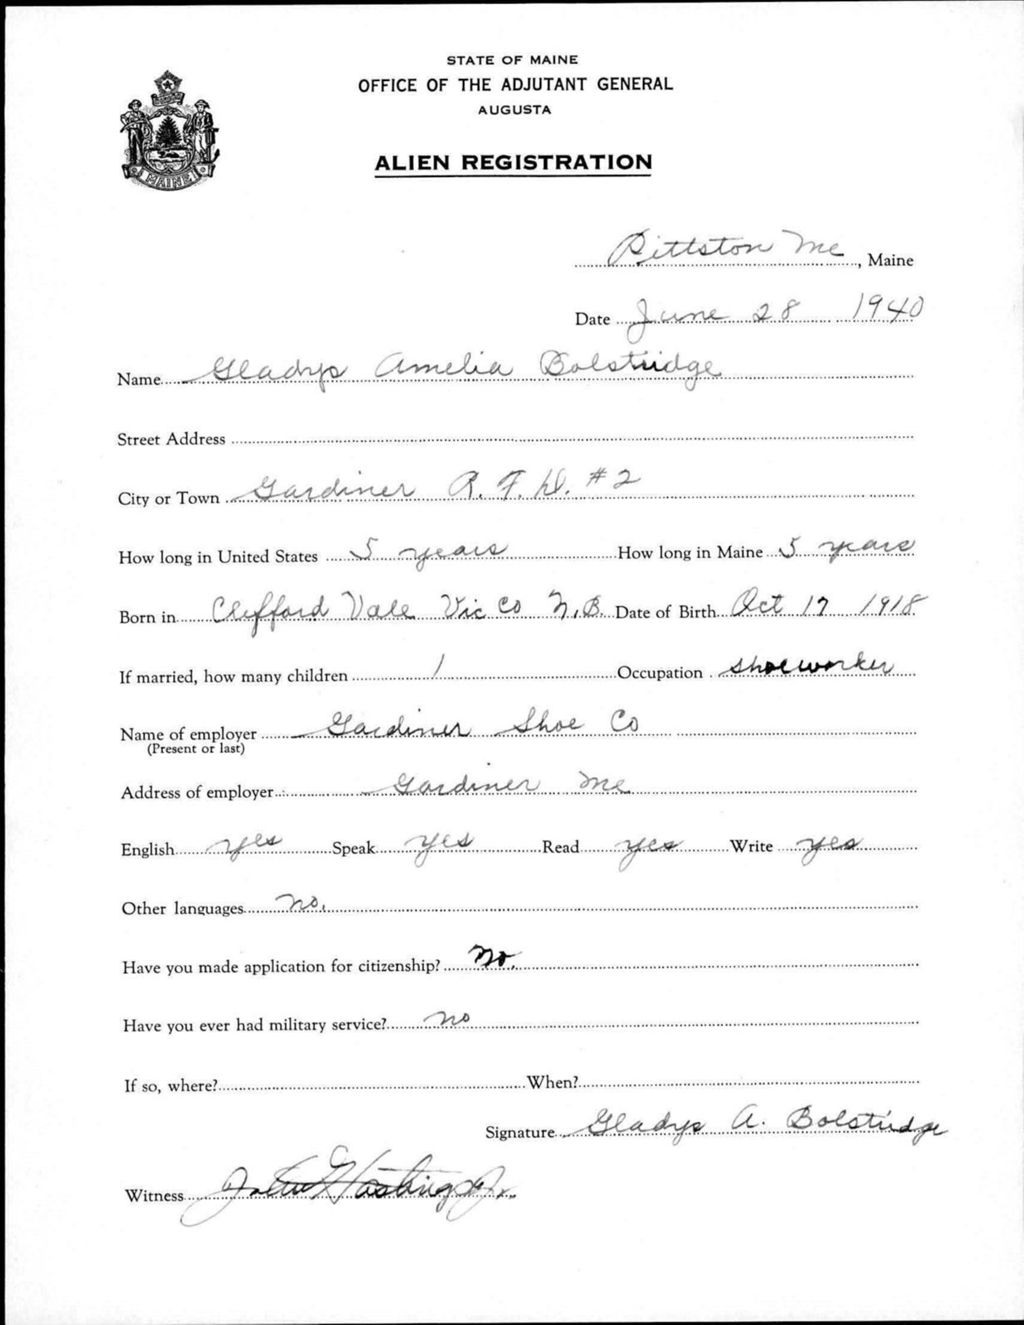 STATE OF MAINE
OFFICE OF THE ADJUTANT GENERAL
AUGUSTA
ALIEN REGISTRATION
MAINE
Pittston Me, Maine
Date June 28 1940
Name Gladys Amelia Bolstridge
Street Address
City or Town Gardiner R.F.D. #2
How long in United States 5 years How long in Maine 5 years
Born in Clyfford Vale Vic Co N.B. Date of Birth Oct 17 1918
If married, how many children 1 Occupation Shoeworker
Name of employer Gardiner Shoe Co
(Present or last)
Address of employer Gardiner Me
English yes Speak yes Read yes Write yes
Other languages no.
Have you made application for citizenship? No.
Have you ever had military service? no
If so, where? When?
Signature Gladys A. Bolstridge
Witness Hastings Jr.